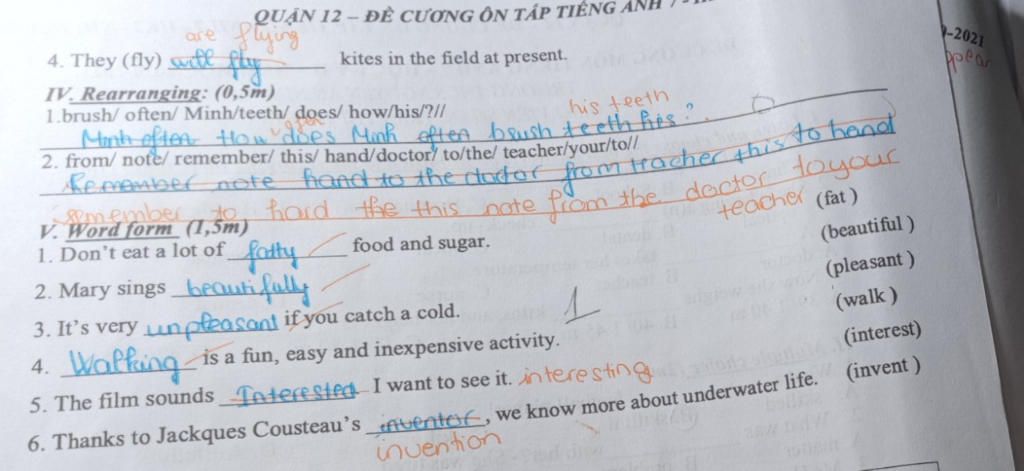 QUẬN 12 – ĐỀ CƯƠNG ÔN TẬP TIẾNG ANH 7
9-2021
are flying
4. They (fly) will fly kites in the field at present.
IV. Rearranging: (0,5m)
1.brush/ often/ Minh/teeth/ does/ how/his/?//
his teeth
often
Minh often How does Minh often brush teeth his ?
2. from/ note/ remember/ this/ hand/doctor/ to/the/ teacher/your/to//
Remember note hand to the doctor from tracher this to hand
remember to hard the this note from the doctor to your
teacher
V. Word form (1,5m)
1. Don't eat a lot of fatty food and sugar. (fat )
2. Mary sings beautifully (beautiful )
3. It's very unpleasant if you catch a cold. (pleasant )
1
4. Walking is a fun, easy and inexpensive activity. (walk )
5. The film sounds Interested I want to see it. interesting (interest)
6. Thanks to Jackques Cousteau's inventor, we know more about underwater life. (invent )
invention